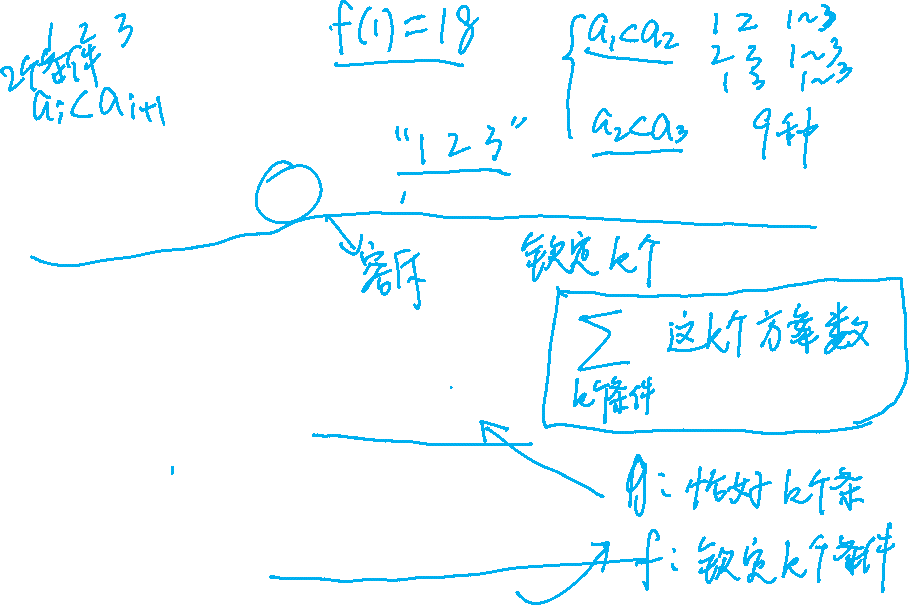 1 2 3
2个条件
a_i < a_{i+1}
f(1) = 18
a_1 < a_2 1 2 1~3
2 3 1~3
1 3 1~3
a_2 < a_3 9种
"1 2 3"
容斥
钦定k个
∑ 这k个方案数
k个条件
g: 恰好k个条
f: 钦定k个条件